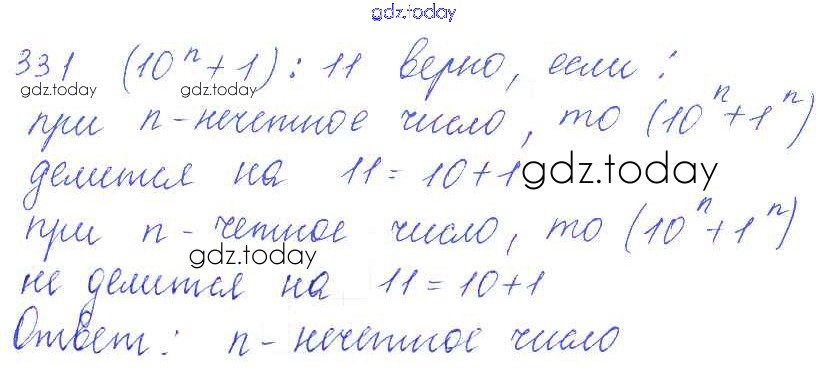 gdz.today
331 (10ⁿ + 1) : 11 верно, если :
gdz.today gdz.today
при n - нечетное число, то (10ⁿ + 1ⁿ)
делится на 11 = 10 + 1
gdz.today
при n - четное число, то (10ⁿ + 1ⁿ)
gdz.today
не делится на 11 = 10 + 1
Ответ : n - нечетное число